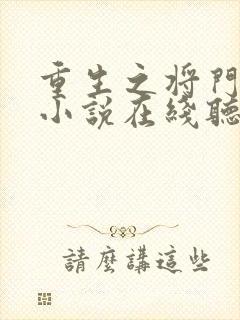 重生之将門
小説在綫聽
請麼講這些